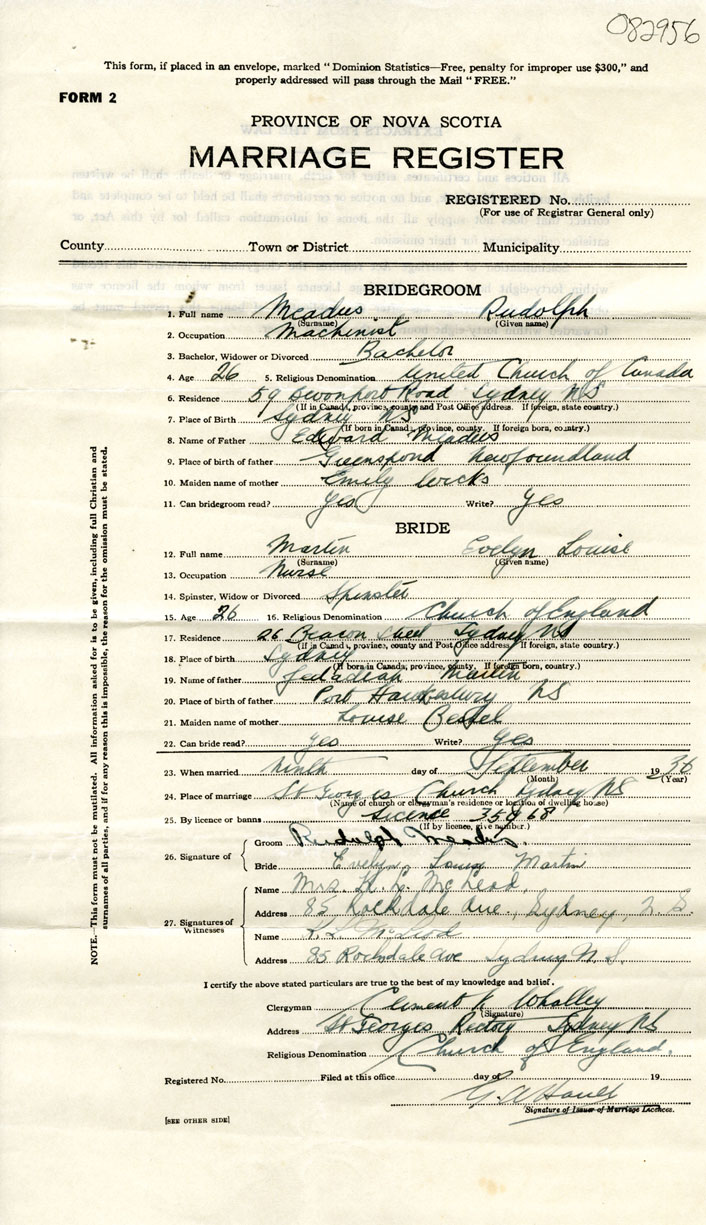 082956
This form, if placed in an envelope, marked "Dominion Statistics—Free, penalty for improper use $300," and
properly addressed will pass through the Mail "FREE."
FORM 2
PROVINCE OF NOVA SCOTIA
MARRIAGE REGISTER
REGISTERED No.
(For use of Registrar General only)
County Town or District Municipality
BRIDEGROOM
1. Full name Meadus Rudolph
(Surname) (Given name)
2. Occupation Machinist
3. Bachelor, Widower or Divorced Bachelor
4. Age 26 5. Religious Denomination United Church of Canada
6. Residence 59 Devonport Road Sydney NS
(If in Canada, province, county and Post Office address. If foreign, state country.)
7. Place of Birth Sydney NS
(If born in Canada, province, county. If foreign born, country.)
8. Name of Father Edward Meadus
9. Place of birth of father Greenspond Newfoundland
10. Maiden name of mother Emily Wicks
11. Can bridegroom read? Yes Write? Yes
BRIDE
12. Full name Martin Evelyn Louise
(Surname) (Given name)
13. Occupation Nurse
14. Spinster, Widow or Divorced Spinster
15. Age 26 16. Religious Denomination Church of England
17. Residence 26 Beacon Street Sydney NS
(If in Canada, province, county and Post Office address. If foreign, state country.)
18. Place of birth Sydney
(If born in Canada, province, county. If foreign born, country.)
19. Name of father Martin
20. Place of birth of father Port Hawkesbury NS
21. Maiden name of mother Louise
22. Can bride read? yes Write? yes
23. When married ninth day of September 1936
(Month) (Year)
24. Place of marriage St Georges Church Sydney NS
(Name of church or clergyman's residence or location of dwelling house)
25. By licence or banns License 35868
(If by licence, give number.)
26. Signature of
Groom Rudolph Meadus.
Bride Evelyn Louise Martin
27. Signatures of Witnesses
Name Mrs. McLeod
Address 85 Rockdale Ave., Sydney, N.S.
Name McLeod
Address 85 Rockdale Ave Sydney N.S.
I certify the above stated particulars are true to the best of my knowledge and belief.
Clergyman Clement Whalley
(Signature)
Address St Georges Rectory Sydney NS
Religious Denomination Church of England.
Registered No. Filed at this office day of 19
G.A.
Signature of Issuer of Marriage Licences.
[SEE OTHER SIDE]
NOTE.—This form must not be mutilated. All information asked for is to be given, including full Christian and
surnames of all parties, and if for any reason this is impossible, the reason for the omission must be stated.